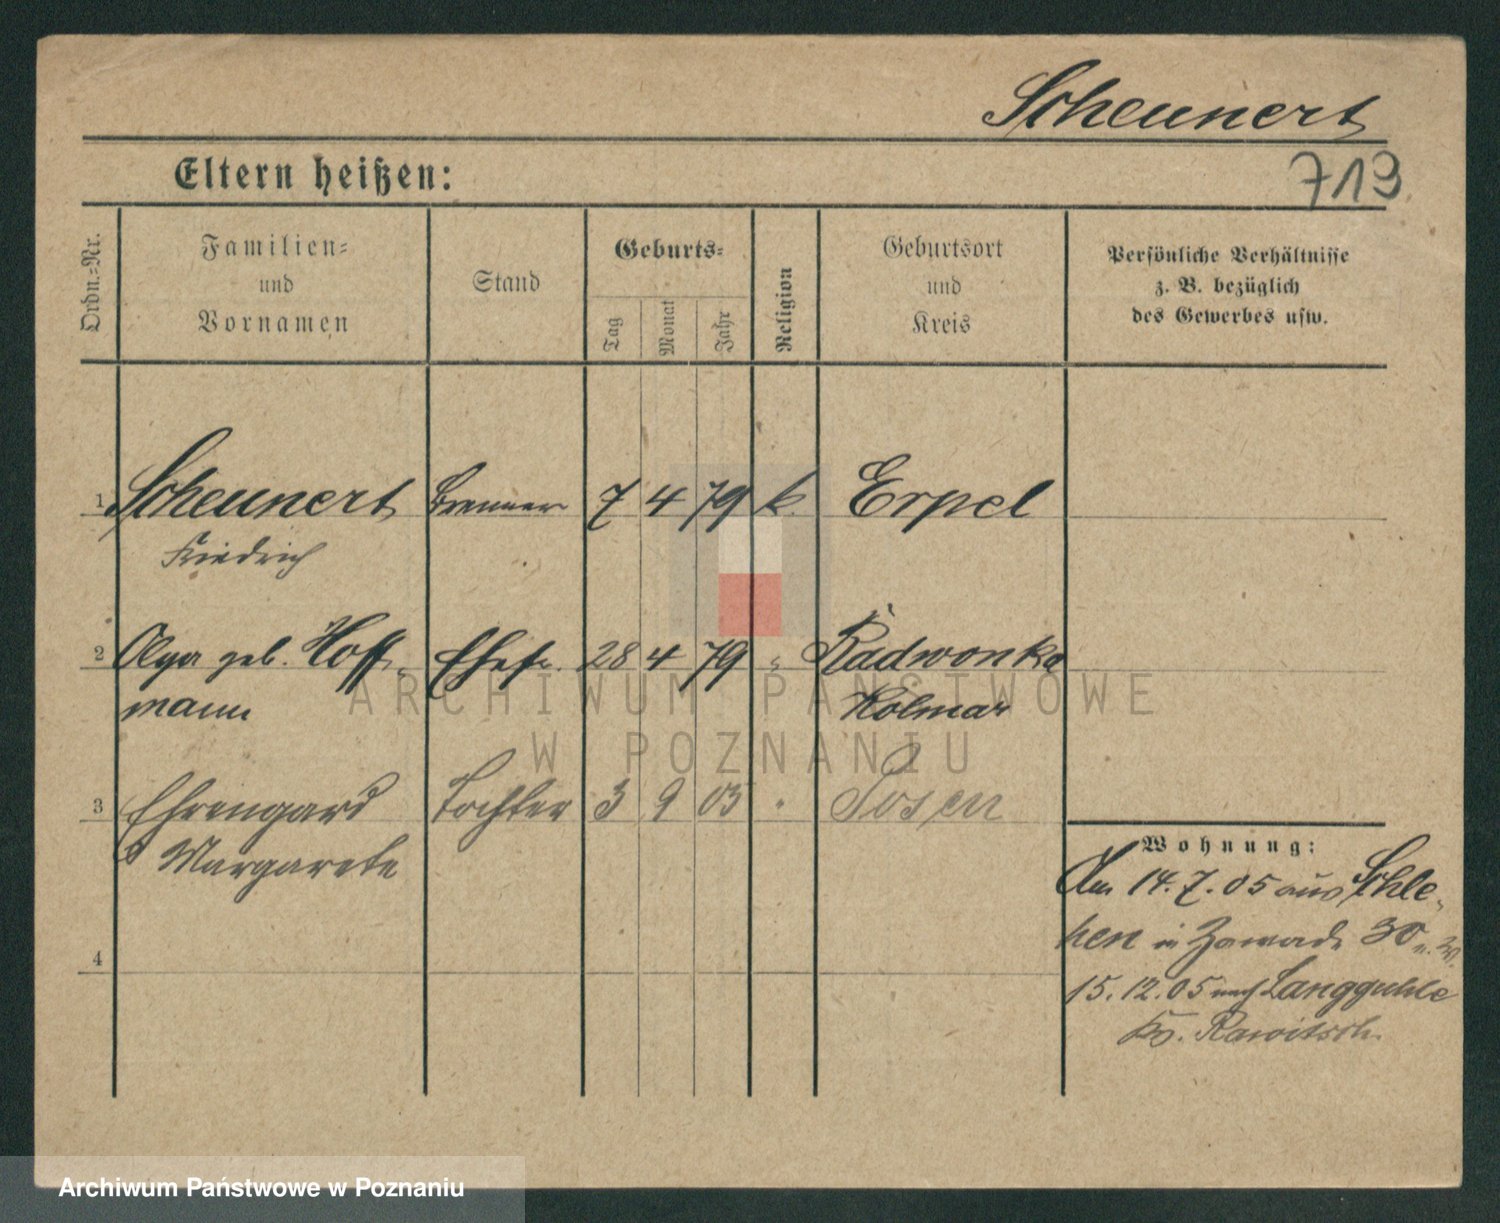 Scheunert
713
Eltern heißen:
Ordn.-Nr.
Familien-
und
Vornamen
Stand
Geburts-
Tag
Monat
Jahr
Religion
Geburtsort
und
Kreis
Persönliche Verhältnisse
z. B. bezüglich
des Gewerbes usw.
1 Scheunert Brenner 7 4 79 k. Erpel
Friedrich
2 Olga geb. Hoff- Ehefr. 28 4 79 " Radwonke
mann Kolmar
3 Ehrengard Tochter 3 9 05 " Posen
Margarete
4
Wohnung:
Am 14.7.05 aus Schle-
hen in Zawade 30
15.12.05 nach Langguhle
Kr. Rawitsch.
ARCHIWUM PAŃSTWOWE
W POZNANIU
Archiwum Państwowe w Poznaniu